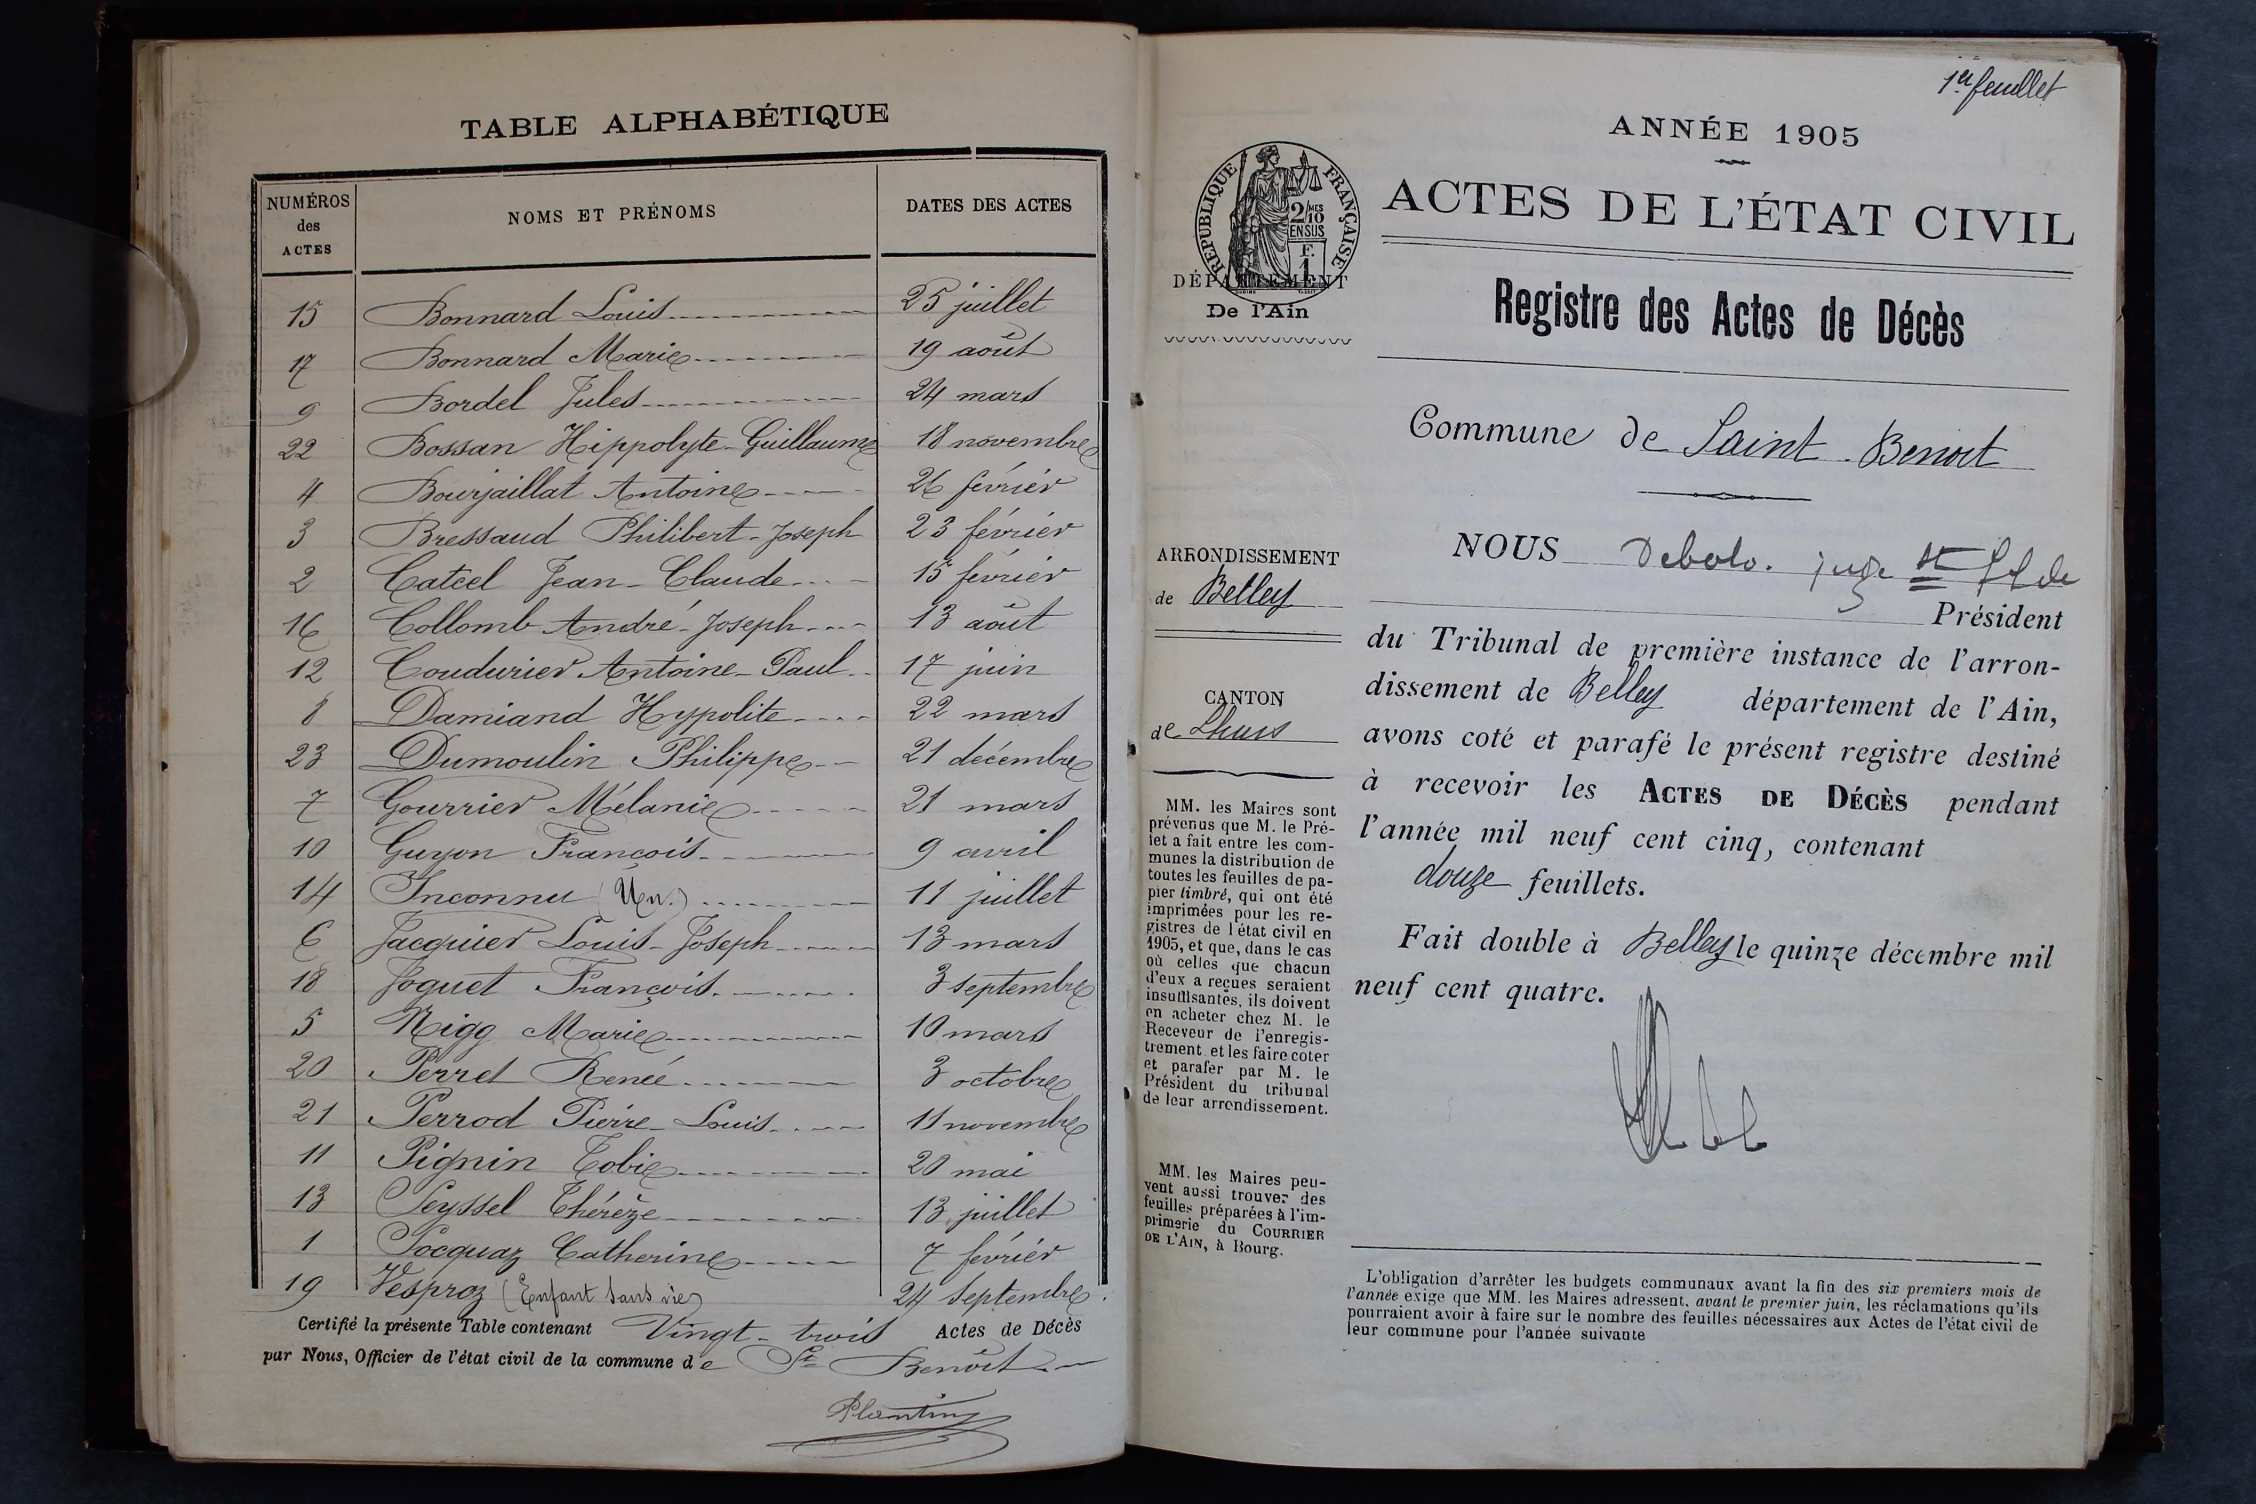 TABLE ALPHABÉTIQUE
NUMÉROS des ACTES NOMS ET PRÉNOMS DATES DES ACTES
15 Bonnard Louis 25 juillet
17 Bonnard Marie 19 août
9 Bordel Jules 24 mars
22 Bossan Hippolyte-Guillaume 18 novembre
4 Bourjaillat Antoine 26 février
3 Bressaud Philibert-Joseph 23 février
2 Catcel Jean-Claude 15 février
16 Collomb André-Joseph 13 août
12 Coudurier Antoine-Paul 17 juin
8 Damiand Hypolite 22 mars
23 Dumoulin Philippe 21 décembre
7 Gourrier Mélanie 21 mars
10 Guyon François 9 avril
14 Inconnu (Un) 11 juillet
6 Jacquier Louis-Joseph 13 mars
18 Joguet François 3 septembre
5 Nigg Marie 10 mars
20 Perret Renée 3 octobre
21 Perrod Pierre-Louis 11 novembre
11 Pignin Tobie 20 mai
13 Seyssel Thérèze 13 juillet
1 Socquaz Catherine 7 février
19 Vesproz (Enfant sans vie) 24 septembre
Certifié la présente Table contenant Vingt-trois Actes de Décès
par Nous, Officier de l'état civil de la commune de St Benoît
Plantin
1er feuillet
ANNÉE 1905
RÉPUBLIQUE FRANÇAISE
2/10 MES
EN SUS
F.
1
DÉPARTEMENT
De l'Ain
ACTES DE L'ÉTAT CIVIL
Registre des Actes de Décès
Commune de Saint-Benoit
ARRONDISSEMENT
de Belley
CANTON
de Lhuis
MM. les Maires sont
prévenus que M. le Pré-
fet a fait entre les com-
munes la distribution de
toutes les feuilles de pa-
pier timbré, qui ont été
imprimées pour les re-
gistres de l'état civil en
1905, et que, dans le cas
où celles que chacun
d'eux a reçues seraient
insuffisantes, ils doivent
en acheter chez M. le
Receveur de l'enregis-
trement et les faire coter
et parafer par M. le
Président du tribunal
de leur arrondissement.
MM. les Maires peu-
vent aussi trouver des
feuilles préparées à l'im-
primerie du COURRIER
DE L'AIN, à Bourg.
NOUS Debolo. juge
Président
du Tribunal de première instance de l'arron-
dissement de Belley département de l'Ain,
avons coté et parafé le présent registre destiné
à recevoir les ACTES DE DÉCÈS pendant
l'année mil neuf cent cinq, contenant
douze feuillets.
Fait double à Belley le quinze décembre mil
neuf cent quatre.
L'obligation d'arrêter les budgets communaux avant la fin des six premiers mois de
l'année exige que MM. les Maires adressent, avant le premier juin, les réclamations qu'ils
pourraient avoir à faire sur le nombre des feuilles nécessaires aux Actes de l'état civil de
leur commune pour l'année suivante